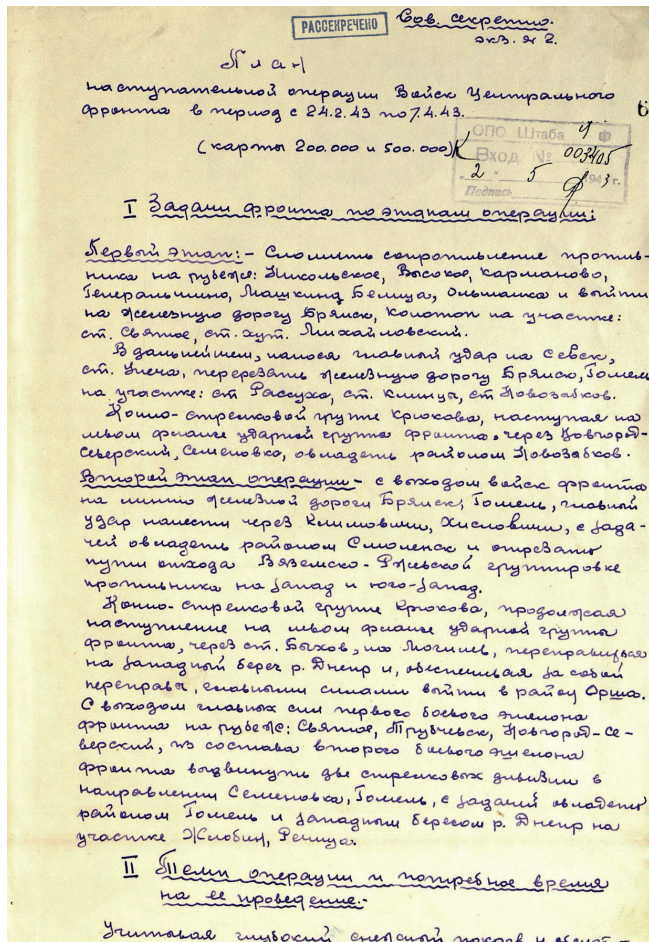 РАССЕКРЕЧЕНО
Сов. секретно.
экз. № 2.
План
наступательной операции Войск Центрального
фронта в период с 24.2.43 по 7.4.43.
6
(карты 200.000 и 500.000)
ОПО Штаба ЦФ
Вход. № 003405
"2" 5 1943 г.
Подпись
I Задачи фронта по этапам операции:
Первый этап:- Сломить сопротивление против-
ника на рубеже: Никольское, Высокое, Карманово,
Генеральшино, Машкина Белица, Ольшанка и выйти
на железную дорогу Брянск, Конотоп на участке:
ст. Святое, ст. хут. Михайловский.
В дальнейшем, нанося главный удар на Севск,
ст. Унеча, перерезать железную дорогу Брянск, Гомель
на участке: ст Рассуха, ст. Клинцы, ст. Новозыбков.
Конно-стрелковой группе Крюкова, наступая на
левом фланге ударной группы фронта, через Новгород-
Северский, Семеновка, овладеть районом Новозыбков.
Второй этап операции - с выходом войск фронта
на линию железной дороги Брянск, Гомель, главный
удар нанести через Климовичи, Хисловичи, с зада-
чей овладеть районом Смоленск и отрезать
пути отхода Вяземско-Ржевской группировке
противника на запад и юго-запад.
Конно-стрелковой группе Крюкова, продолжая
наступление на левом фланге ударной группы
фронта, через ст. Быхов, на Могилев, переправиться
на западный берег р. Днепр и, обеспечивая за собой
переправы, главными силами выйти в район Орша.
С выходом главных сил первого боевого эшелона
фронта на рубеж: Святое, Трубчевск, Новгород-Се-
верский, из состава второго боевого эшелона
фронта выдвинуть две стрелковых дивизии в
направлении Семеновка, Гомель, с задачей овладеть
районом Гомель и западным берегом р. Днепр на
участке Жлобин, Речица.
II Темп операции и потребное время
на ее проведение.-
Учитывая глубокий снежный покров и